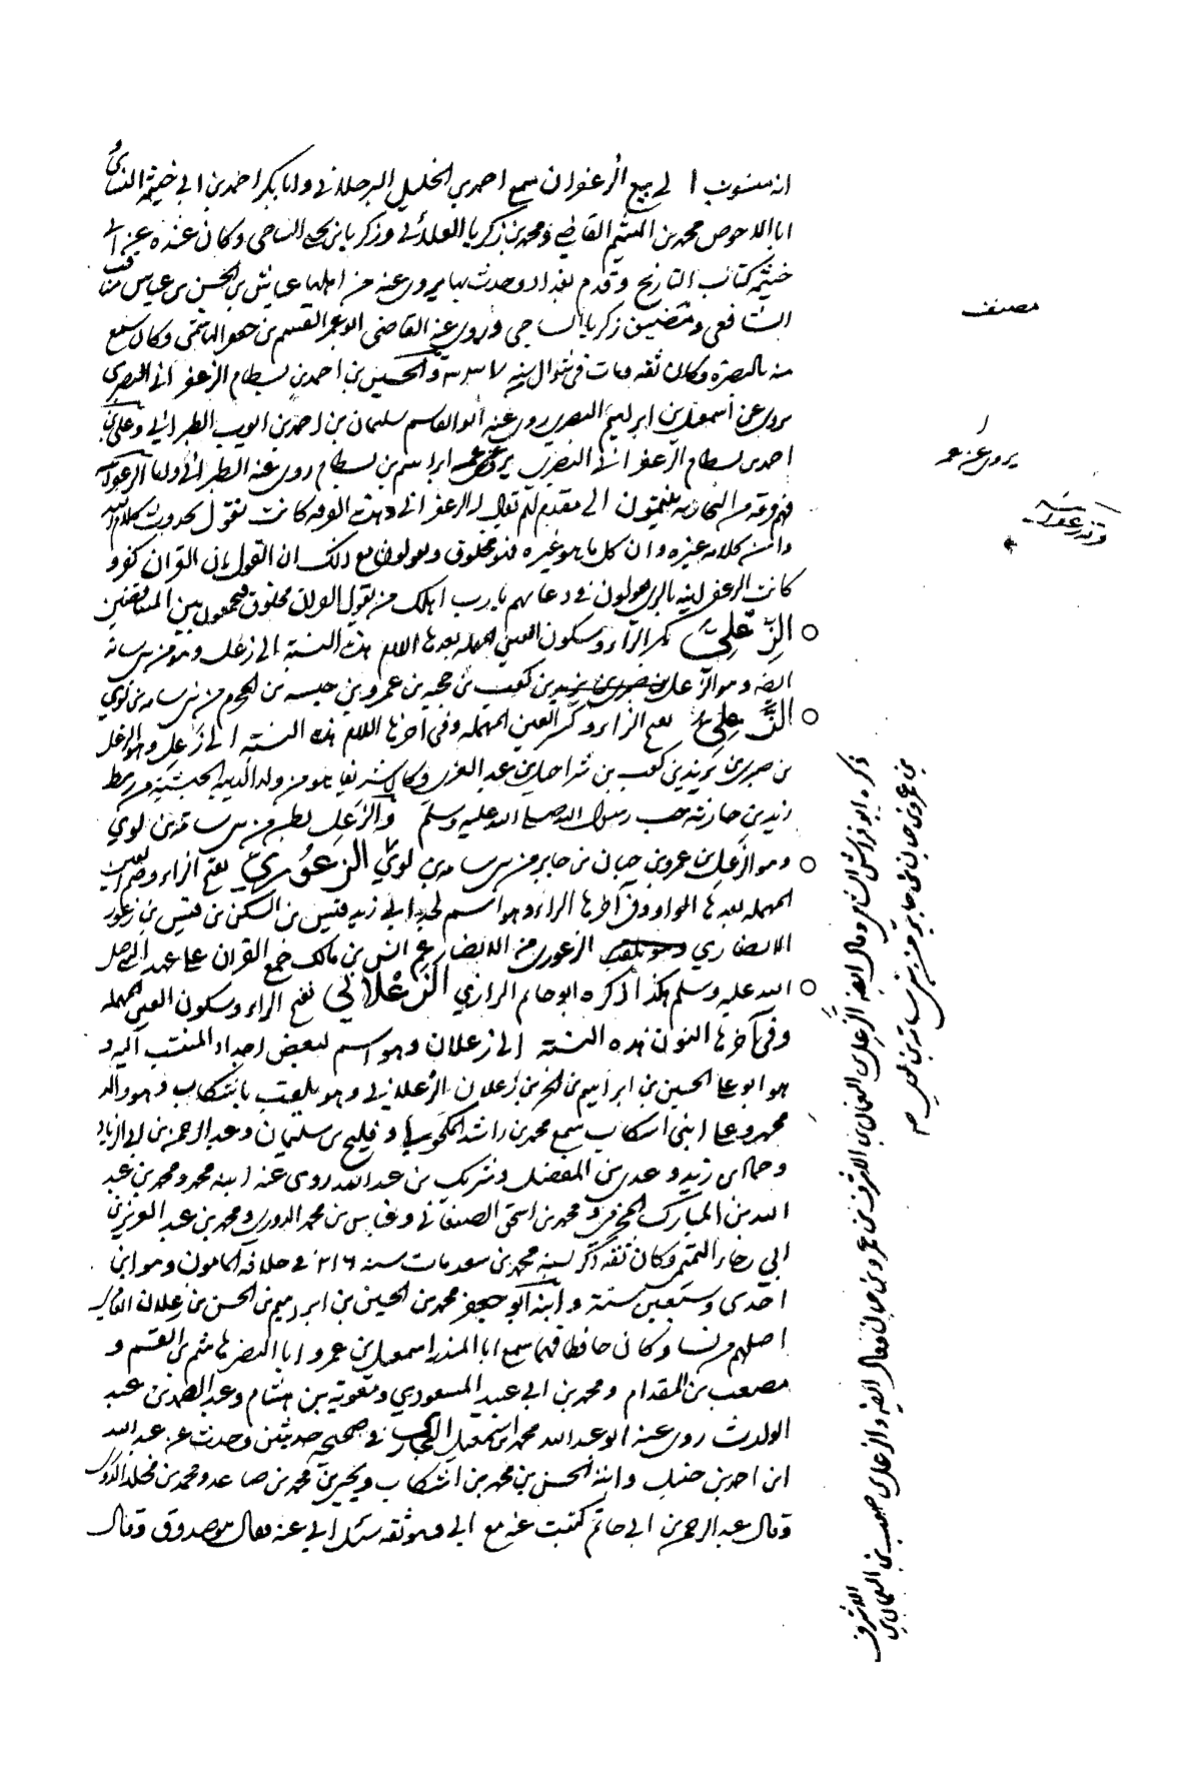 انه منسوب الى بيع الزعفران سمع احمد بن الخليل البرجلاني وابا بكر احمد بن ابي خيثمة النسائي و
ابا الاحوص محمد بن الهيثم القاضي ومحمد بن زكريا الغلابي وزكريا بن يحيى الساجي وكان عنده عن ابي
خيثمة كتاب التاريخ وقدم بغداد وحدث بها يروي عنه من اهلها عياش بن الحسن بن عياش
الشافعي وتصنيف زكريا الساجي وروى عنه القاضي ابو عمر القسم بن جعفر الهاشمي وكان سمع
منه بالبصرة وكان ثقة ومات في شوال سنة والحسين بن احمد بن بسطام الزعفراني البصري
يروي عن اسمعيل بن ابرهيم البصري روى عنه ابو القاسم سليمان بن احمد بن ايوب الطبراني وعلي بن
احمد بن بسطام الزعفراني البصري يروي عن عمه ابراهيم بن بسطام روى عنه الطبراني واما الزعفرانية
فهم فرقة من النجارية ينتمون الى مقدم لهم يقال له الزعفراني وهذه الفرقة كانت تقول بحدوث كلام الله
وان كلامه غيره وان كل ما هو غيره فهو مخلوق ويقولون مع ذلك ان القول بان القران كفر و
كانت الزعفرانية بالري يقولون في دعايهم يا رب اهلك من يقول القران مخلوق فيجمعون بين المتناقضين
الزِّعْلي بكسر الزاء وسكون العين المهملة بعدها اللام هذه النسبة الى زعل وهو من بني سامة
ايضا وهو الزعل بن كعب بن حجية بن عمرو بن من بني سامة بن لوي
الزَّعِلي بفتح الزاء وكسر العين المهملة وفي اخرها اللام هذه النسبة الى زعل وهو الزعل
بن صبري بن يزيد بن كعب بن شراحيل بن عبد العزى وكان شريفا من ولد من رهط
زيد بن حارثة حب رسول الله صلى الله عليه وسلم والزعل بطن من بني سامة بن لوي
وهو الزعل بن عمرو بن حبان بن جابر من بني سامة بن لوي الزعوري بفتح الزاء وضم العين
المهملة بعدها الواو وفي آخرها الراء وهو اسم لجد ابي زيد قيس بن السكن بن قيس بن زعور
الانصاري الزعوري من الانصار عم انس بن مالك جمع القران على عهد النبي صلى
الله عليه وسلم هكذا ذكره ابو حاتم الرازي الزَّعْلاني بفتح الزاء وسكون العين المهملة
وفي آخرها النون هذه النسبة الى زعلان وهو اسم لبعض اجداد المنتسب اليه و
هو ابو علي الحسين بن ابراهيم بن الحر بن زعلان الزعلاني وهو يلقب باشكاب وهو والد
محمد وعلي ابني اشكاب سمع محمد بن راشد المكحولي وفليح بن سليمان وعبد الرحمن بن ابي الزناد
وحماد بن زيد وعدي بن المفضل وشريك بن عبد الله روى عنه ابنه محمد ومحمد بن عبد
الله بن المبارك المخرمي ومحمد بن اسحق الصنعاني وعباس بن محمد الدوري ومحمد بن عبد العزيز بن
ابي رجاء التميمي وكان ثقة ذكر محمد بن سعد مات سنة ٢١٦ في خلافة المامون وهو ابن
احدى وسبعين سنة وابنه ابو جعفر محمد بن الحسين بن ابراهيم بن الحسن بن زعلان العامري
اصلهم من نسا وكان حافظا فهما سمع ابا المنذر اسمعيل بن عمر وابا النضر هاشم بن القسم و
مصعب بن المقدام ومحمد بن ابي عبيد المسعودي ومعوية بن هشام وعبد الصمد بن عبد
الوارث روى عنه ابو عبد الله محمد بن اسمعيل البخاري في صحيحه حديثين وحدث عنه عبد الله
ابن احمد بن حنبل وابنه الحسن بن محمد بن اشكاب ويحيى بن محمد بن صاعد ومحمد بن مخلد الدوري
وقال عبد الرحمن بن ابي حاتم كتبت عنه مع ابي وهو ثقة سئل ابي عنه فقال صدوق وقال
مصنف
يروي عن عمه
ذكره ابو فراس الشامي وقال ايضا الزعل بن النعمان بن الاشرف بن عمرو بن حبان وقال ايضا والزعل بن صهيب بن النعمان بن
الاشرف
بن عمرو بن حبان بن جابر من بني سامة بن لوي